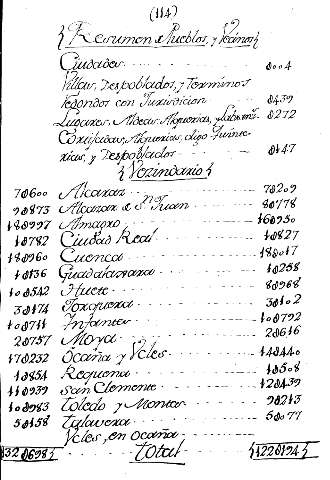 (114)
{Resumen de Pueblos, y Vecinos}
Ciudades 0004
Villas, Despoblados, y Terminos
redondos con Jurisdicion 0439
Lugares, Aldeas, Alquerias, y 0272
Cortijadas, Alquerias, digo
rias, y Despoblados 0147
{Vezindario}
70600 Alcaraz 70209
90873 Alcazar de Sn Juan 80778
180997 Almagro 160950
10782 Ciudad Real 10827
180960 Cuenca 180017
10136 Guadalaxara 10258
100542 Huete 80968
30174 Jorquera 30102
100711 Infantes 100792
20757 Moya 20616
170232 Ocaña y Vcles 140440
10854 Requena 10508
110939 San Clemente 120439
100983 Toledo y Montes 90213
50158 Talavera 50077
Vcles, en Ocaña
1320698} Total {1220194}